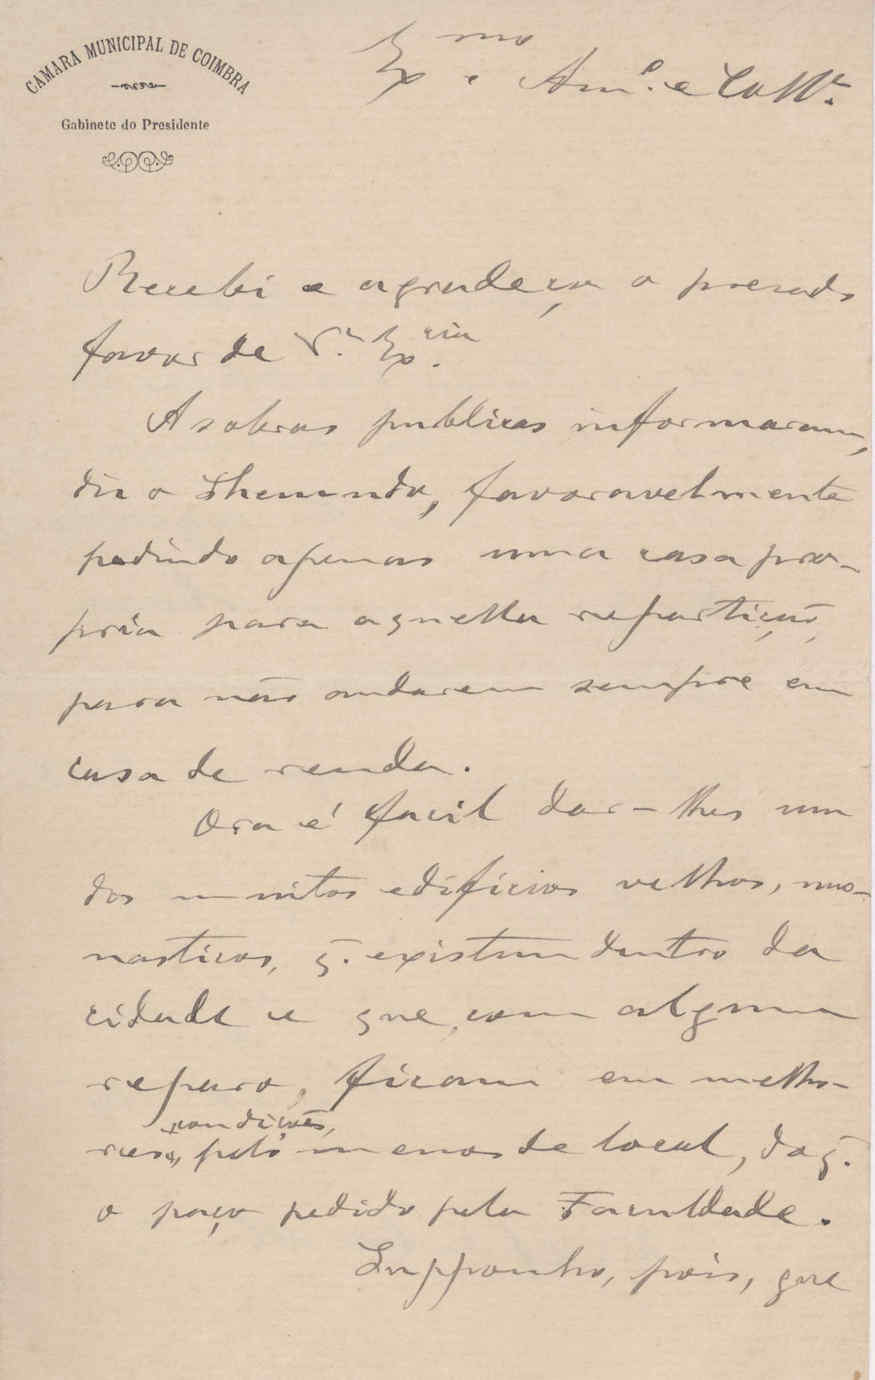 CAMARA MUNICIPAL DE COIMBRA
Gabinete do Presidente
Exmo. Amº. e Coll.
Recebi e agradeço o presado
favor de V.ª Ex.cia
As obras publicas informaram,
diz o Thesundo, favoravelmente
pedindo apenas uma casa pro-
pria para aquella repartição,
para não andarem sempre em
casa de renda.
Ora é facil dar-lhes um
dos muitos edificios velhos, mo-
nasticos, q. existem dentro da
cidade e que, com algum
reparo, ficam em melho-
condições,
res, pelo menos de local, do q.
o paço pedido pela Faculdade.
Supponho, pois, que